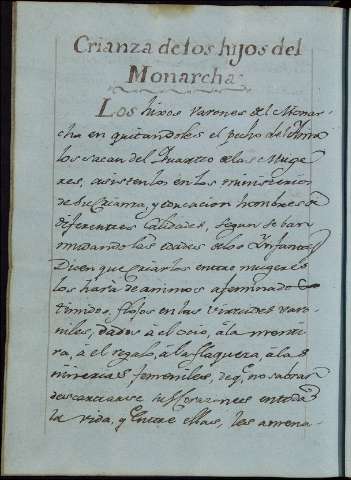 Crianza de los hijos del
Monarcha.
Los hixos varones del Monar-
cha en quitandoles el pecho del Ama
los sacan del Quarto de las Muge
res, asistenlos en los ministerios
de su crianza, y educacion hombres de
diferentes calidades, segun se ban
mudando las edades de los Infantes
Dicen que criarlos entre mugeres
los haria de animos afeminados
timidos, flojos en las virtudes varo-
niles, dados à el ocio, à la menti
ra, à el regalo, à la flaqueza, à las
ninerias femeniles, de q, no sabran
descarnarse sus Corazones en toda
la vida, y entre ellas, les amena-